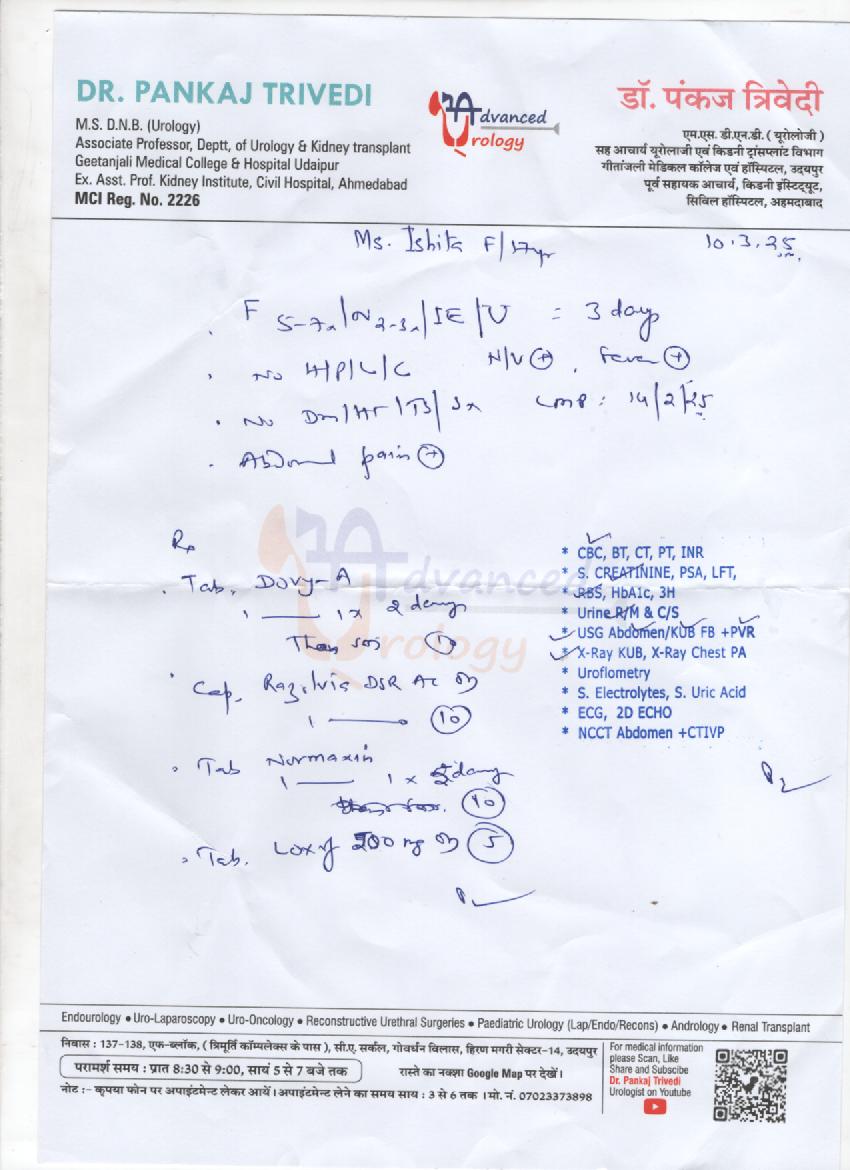 DR. PANKAJ TRIVEDI
M.S. D.N.B. (Urology)
Associate Professor, Deptt, of Urology & Kidney transplant
Geetanjali Medical College & Hospital Udaipur
Ex. Asst. Prof. Kidney Institute, Civil Hospital, Ahmedabad
MCI Reg. No. 2226
Advanced
Urology
डॉ. पंकज त्रिवेदी
एम.एस. डी.एन.डी. ( यूरोलोजी )
सह आचार्य यूरोलाजी एवं किडनी ट्रांसप्लांट विभाग
गीतांजली मेडिकल कॉलेज एवं हॉस्पिटल, उदयपुर
पूर्व सहायक आचार्य, किडनी इंस्टिट्यूट,
सिविल हॉस्पिटल, अहमदाबाद
Ms. Ishita F/17yr 10.3.25
F 5-7x/N2-3x/IE/U = 3 days
No H/P/L/C N/V + , Fever +
No Dm/HT/TB/Sx LMP : 14/2/25
Abdominal pain +
Rx
Tab. Dovy-A
1 — 1 x 2 days
Then sos 10
Cap. DSR AC OD
1 — 10
Tab Normaxin
1 — 1 x days
10
Tab. 200 mg OD 5
Advanced
Urology
* CBC, BT, CT, PT, INR
* S. CREATININE, PSA, LFT,
* RBS, HbA1c, 3H
* Urine R/M & C/S
* USG Abdomen/KUB FB +PVR
* X-Ray KUB, X-Ray Chest PA
* Uroflometry
* S. Electrolytes, S. Uric Acid
* ECG, 2D ECHO
* NCCT Abdomen +CTIVP
Endourology • Uro-Laparoscopy • Uro-Oncology • Reconstructive Urethral Surgeries • Paediatric Urology (Lap/Endo/Recons) • Andrology • Renal Transplant
निवास : 137-138, एफ-ब्लॉक, ( त्रिमूर्ति कॉम्पलेक्स के पास ), सी.ए. सर्कल, गोवर्धन विलास, हिरण मगरी सेक्टर-14, उदयपुर
परामर्श समय : प्रात 8:30 से 9:00, सायं 5 से 7 बजे तक रास्ते का नक्शा Google Map पर देखें।
नोट :- कृपया फोन पर अपाइंटमेन्ट लेकर आयें। अपाइंटमेन्ट लेने का समय साय : 3 से 6 तक । मो. नं. 07023373898
For medical information
please Scan, Like
Share and Subscibe
Dr. Pankaj Trivedi
Urologist on Youtube